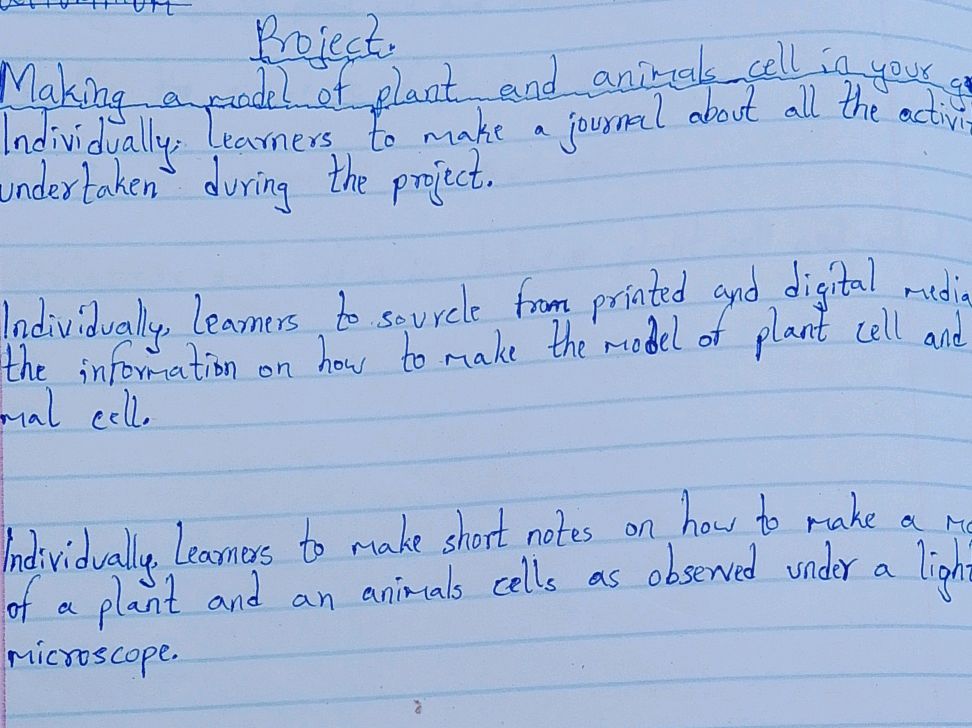 Project.
Making a model of plant and animals cell in your
Individually, learners to make a journal about all the activi
undertaken during the project.
Individually, learners to sourcle from printed and digital media
the information on how to make the model of plant cell and
mal cell.
Individually, learners to make short notes on how to make a mo
of a plant and an animals cells as observed under a light
microscope.